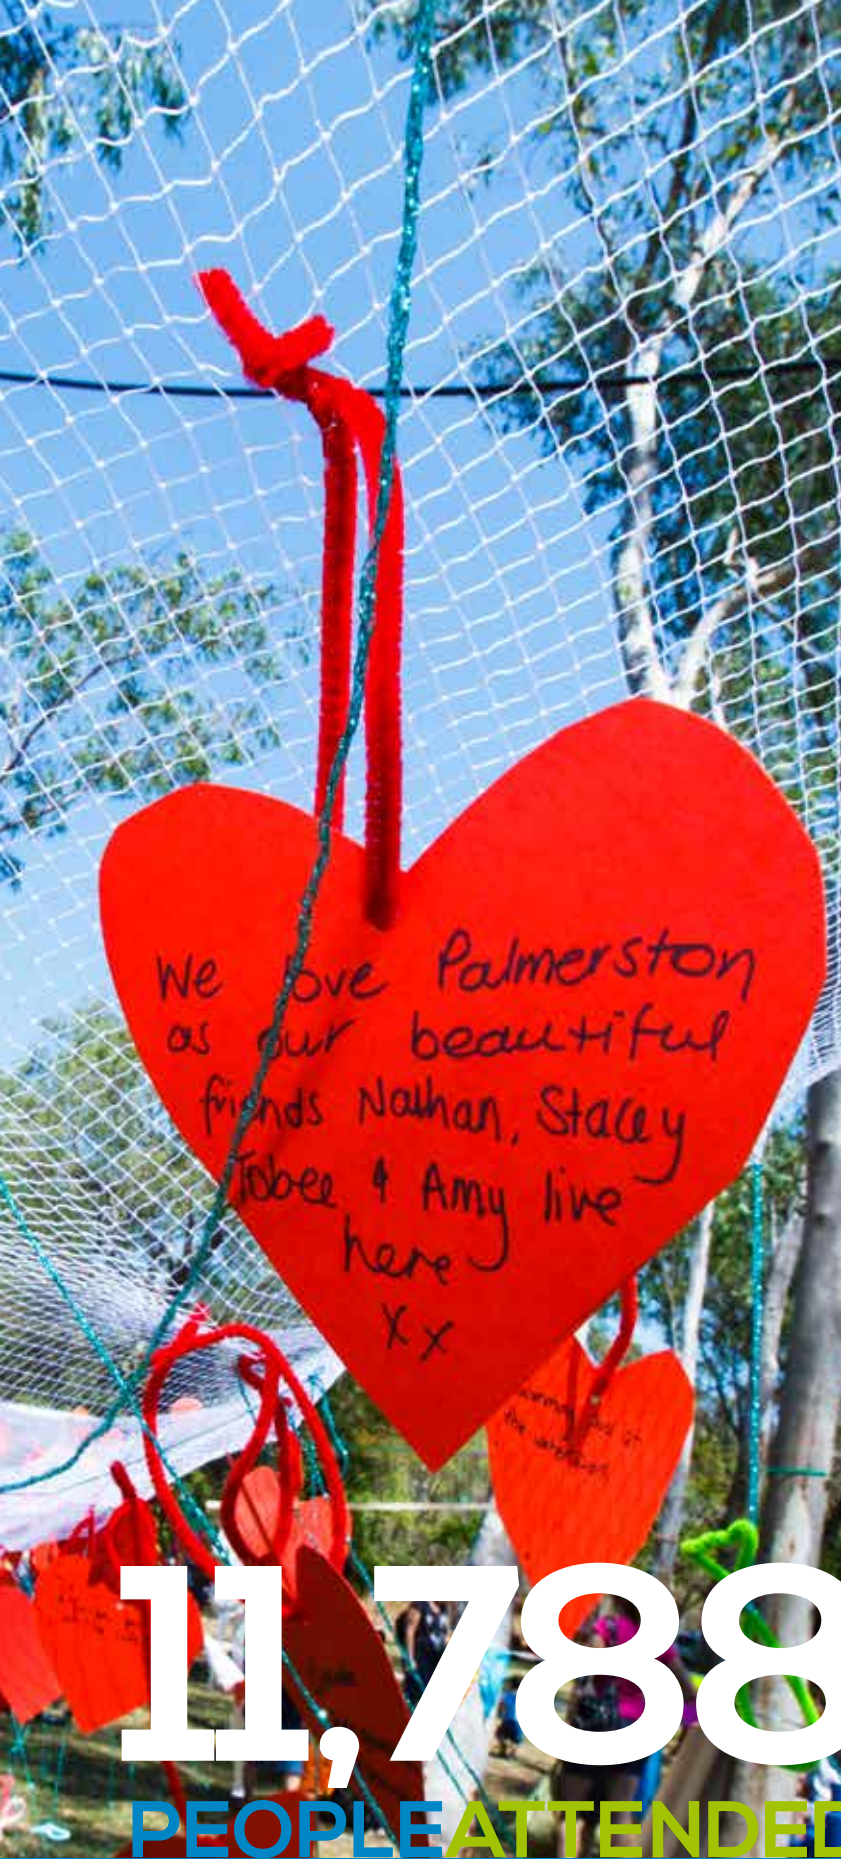 We love Palmerston
as our beautiful
friends Nathan, Stacey
Tobee & Amy live
here
xx
11,788
PEOPLEATTENDED